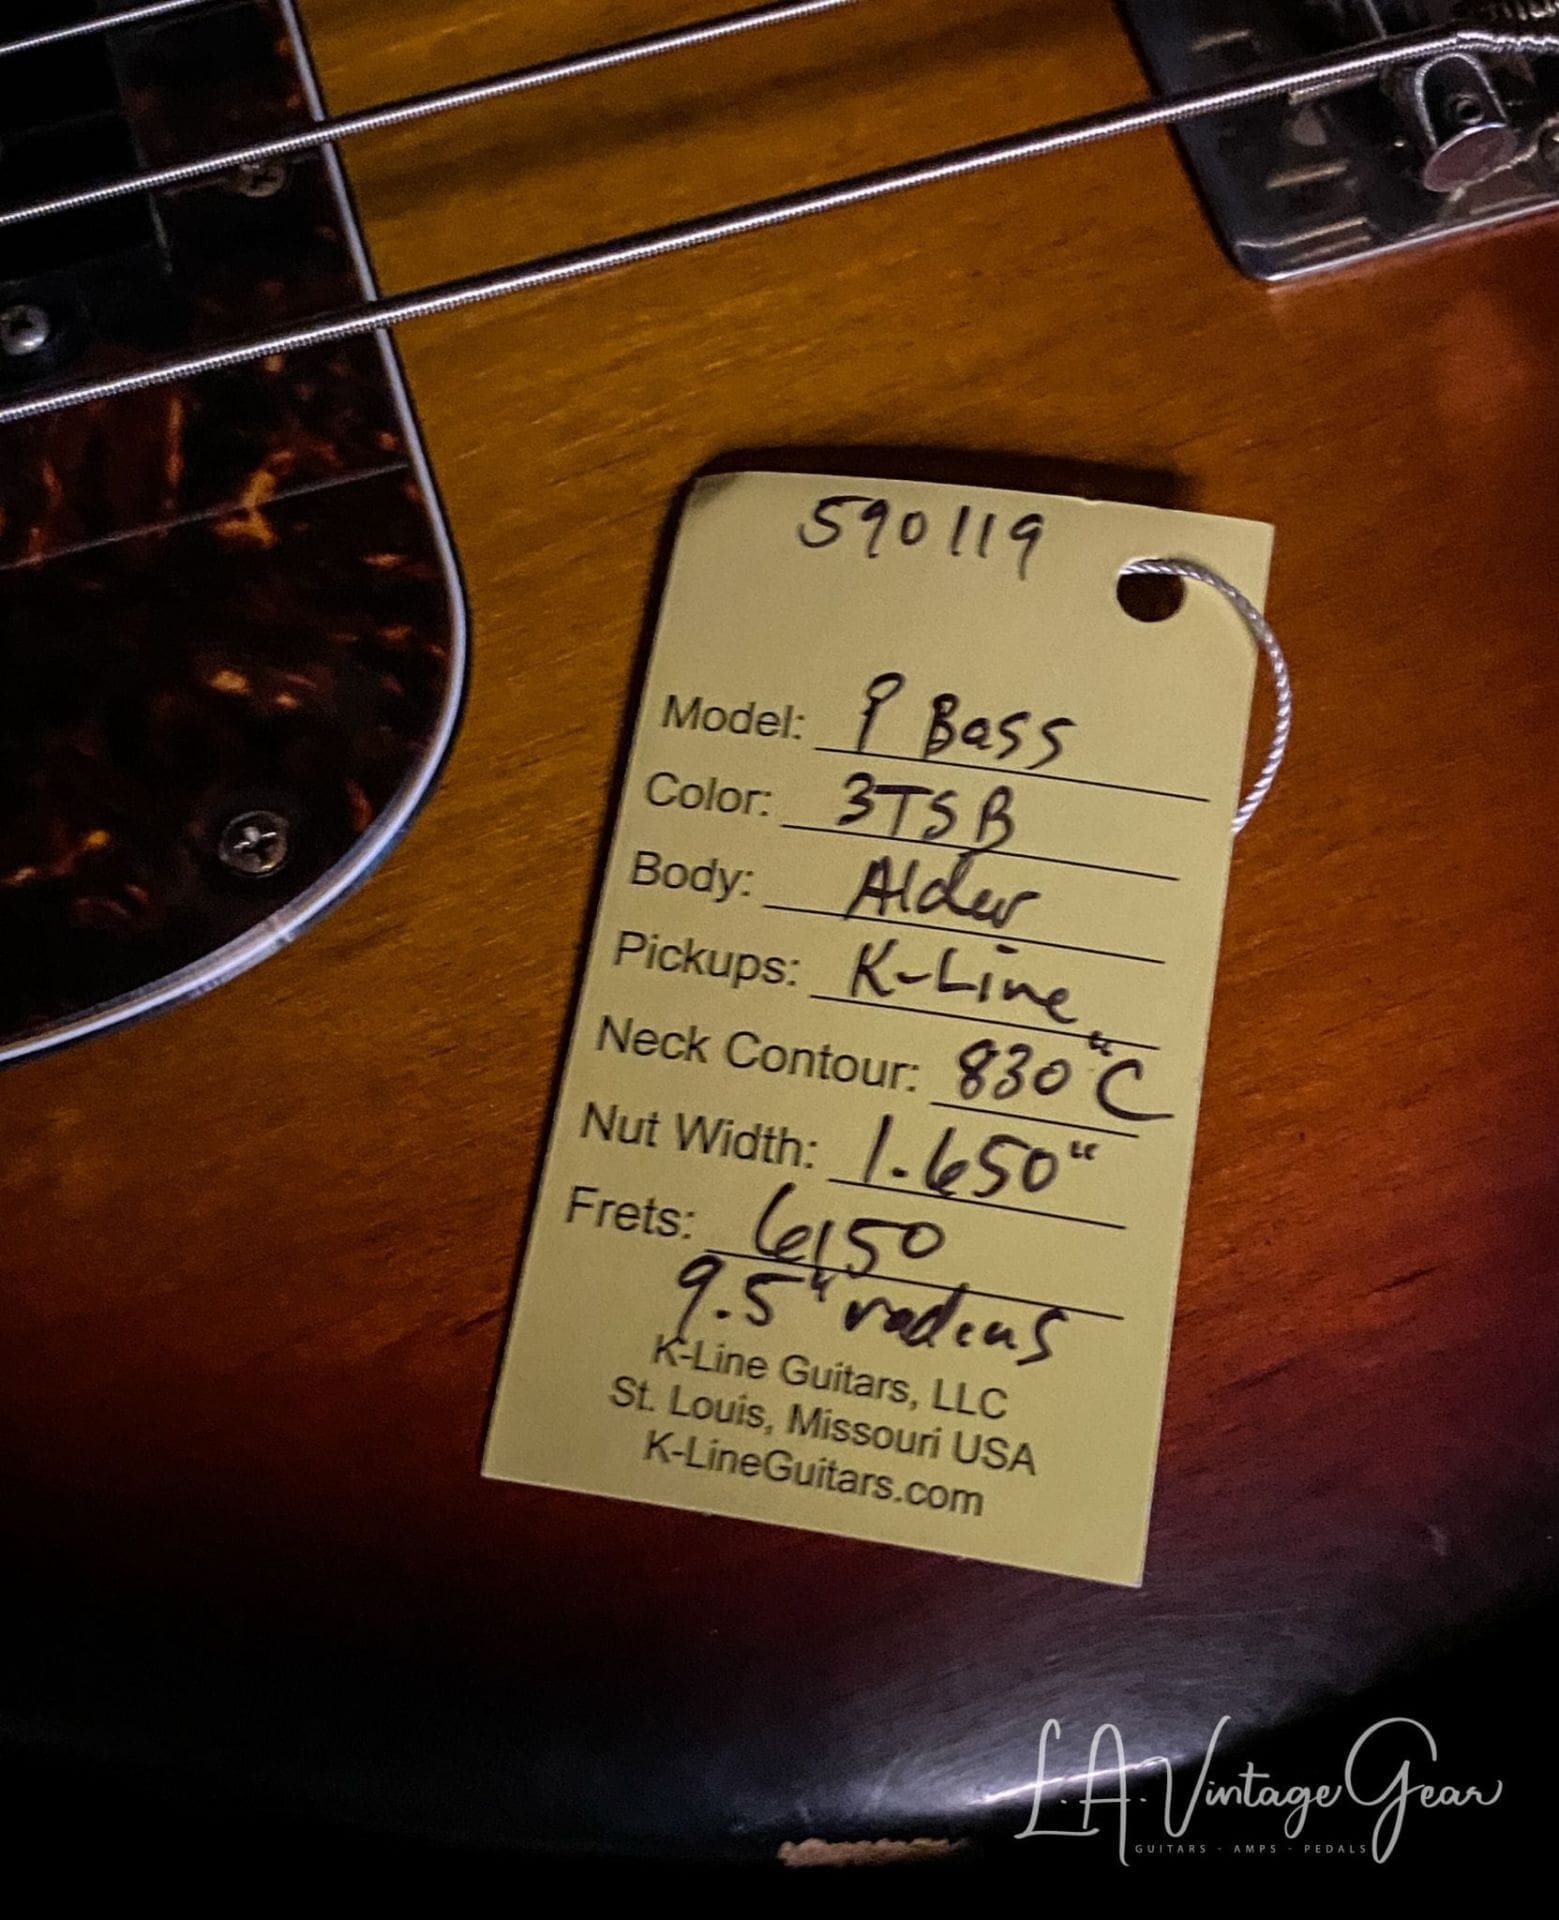 590119
Model: P Bass
Color: 3TSB
Body: Alder
Pickups: K-Line
Neck Contour: 830"C
Nut Width: 1.650"
Frets: 6150
9.5" radius
K-Line Guitars, LLC
St. Louis, Missouri USA
K-LineGuitars.com
L.A. Vintage Gear
GUITARS - AMPS - PEDALS